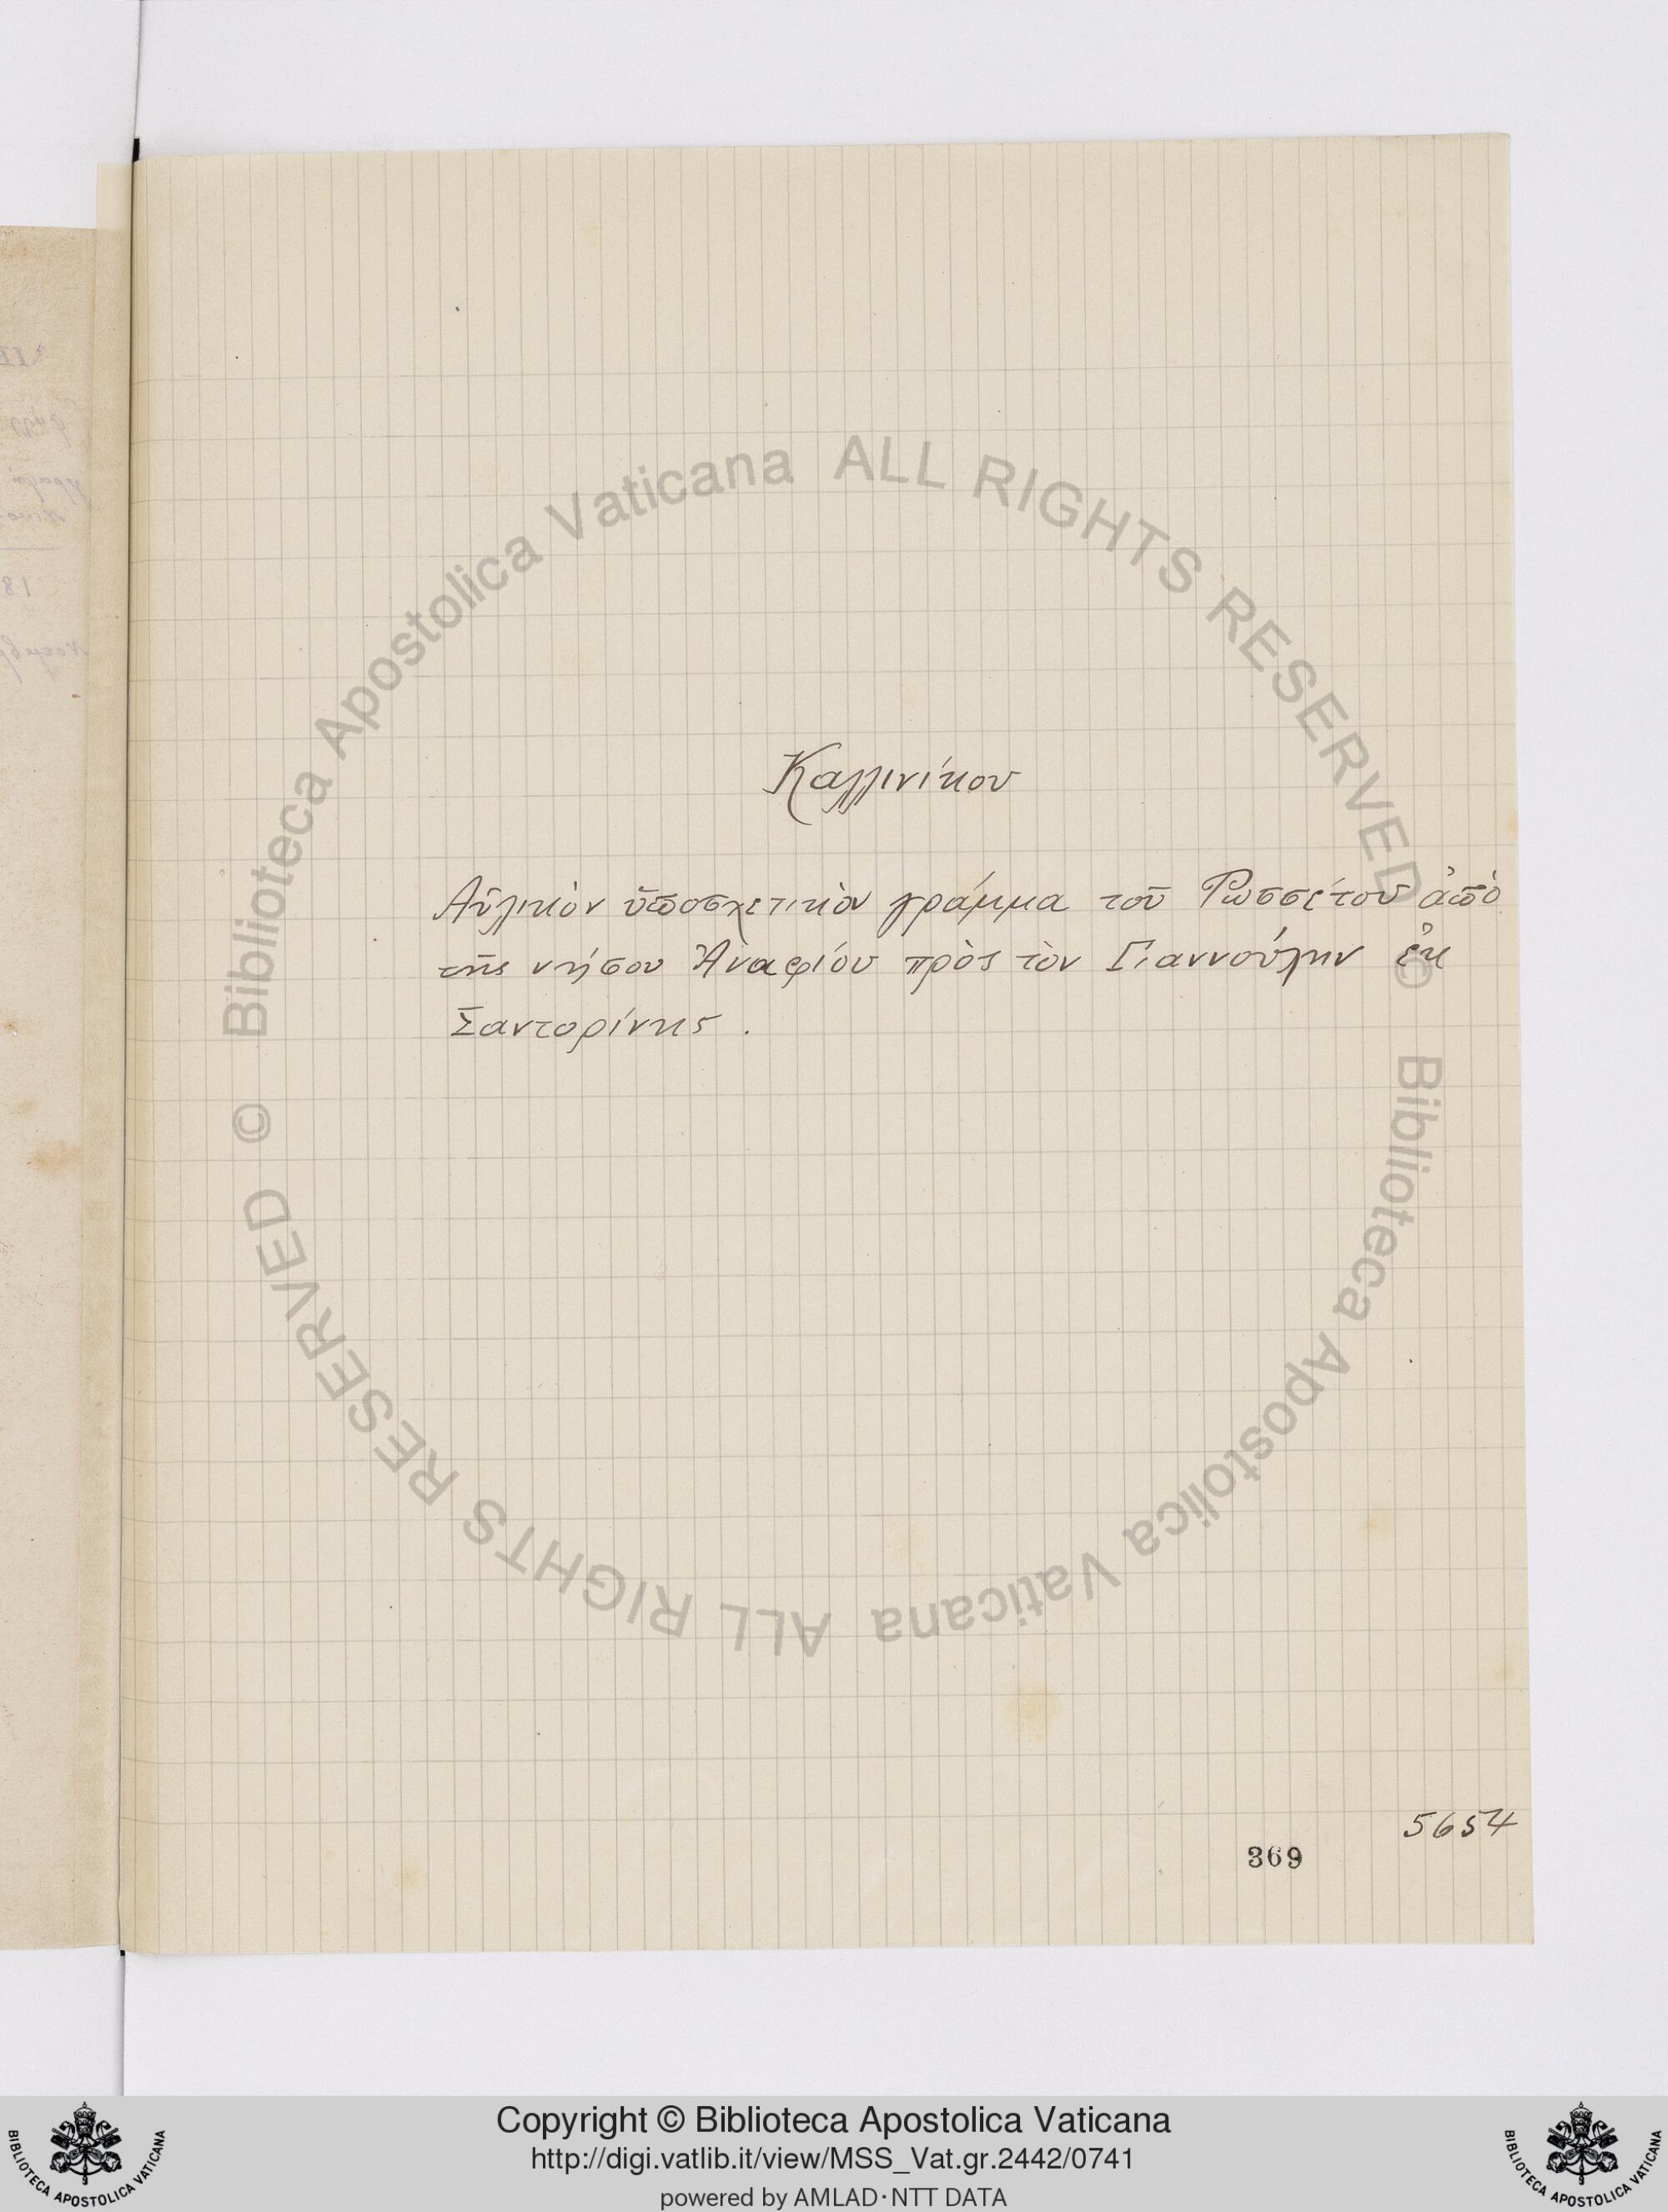 Καλλινίκου
Αὐλικὸν ὑποσχετικὸν γράμμα τοῦ Ρωσσέτου ἀπὸ
τῆς νήσου Ἀναφίου πρὸς τὸν Γιαννούλην ἐκ
Σαντορίνης .
5654
369
Biblioteca Apostolica Vaticana ALL RIGHTS RESERVED ©
Biblioteca Apostolica Vaticana ALL RIGHTS RESERVED ©
Copyright © Biblioteca Apostolica Vaticana
http://digi.vatlib.it/view/MSS_Vat.gr.2442/0741
powered by AMLAD·NTT DATA
BIBLIOTECA APOSTOLICA VATICANA
BIBLIOTECA APOSTOLICA VATICANA